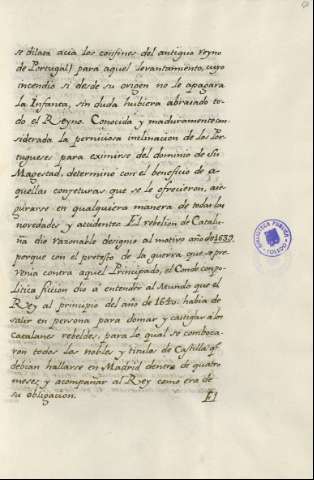 se dilata acia los confines del antiguo reyno
de Portugal) para aquel levantamiento, cuyo
incendio si desde su origen no le apagara
la Infanta, sin duda hubiera abrasado to-
do el Reyno. Conocida y maduramente con-
siderada la perniciosa inclinacion de los Por-
tugueses para eximirse del dominio de Su
Magestad, determino con el beneficio de a-
quellas conjeturas que se le ofrecieron, ase-
gurarse en qualquiera manera de todas las
novedades y accidentes. El rebelion de Catalu-
ña dio razonable designio al motivo año de 1639.
porque con el pretesto de la guerra que se pre-
venia contra aquel Principado, el Conde con po-
litica ficcion dio a entender al Mundo que el
Rey al principio del año de 1640. habia de
salir en persona para domar y castigar a los
Catalanes rebeldes, para lo qual se comboca-
ron todos los nobles y titulos de Castilla qe.
debian hallarse en Madrid dentro de quatro
meses, y acompañar al Rey como era de
su obligacion.
El
BIBLIOTECA PUBLICA
TOLEDO